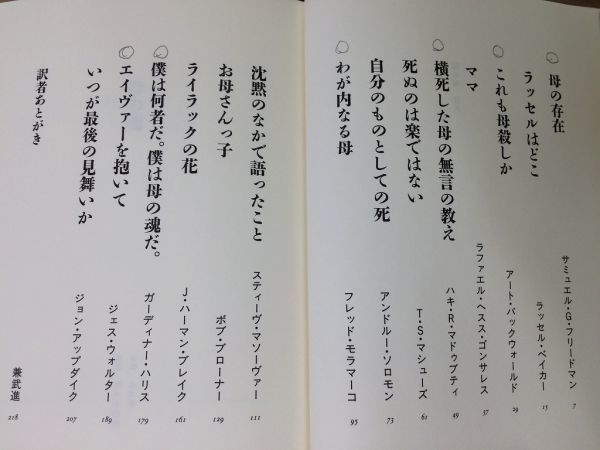 母の存在 サミュエル・G・フリードマン 7
ラッセルはどこ ラッセル・ベイカー 15
これも母殺しか アート・バックウォールド 29
ママ ラファエル・ヘスス・ゴンサレス 37
横死した母の無言の教え ハキ・R・マドゥブティ 49
死ぬのは楽ではない T・S・マシューズ 61
自分のものとしての死 アンドルー・ソロモン 73
わが内なる母 フレッド・モラマーコ 95
沈黙のなかで語ったこと スティーヴ・マソーヴァー 111
お母さんっ子 ボブ・ブローナー 129
ライラックの花 J・ハーマン・ブレイク 161
僕は何者だ。僕は母の魂だ。 ガーディナー・ハリス 179
エイヴァーを抱いて ジェス・ウォルター 189
いつが最後の見舞いか ジョン・アップダイク 207
訳者あとがき 兼武進 218